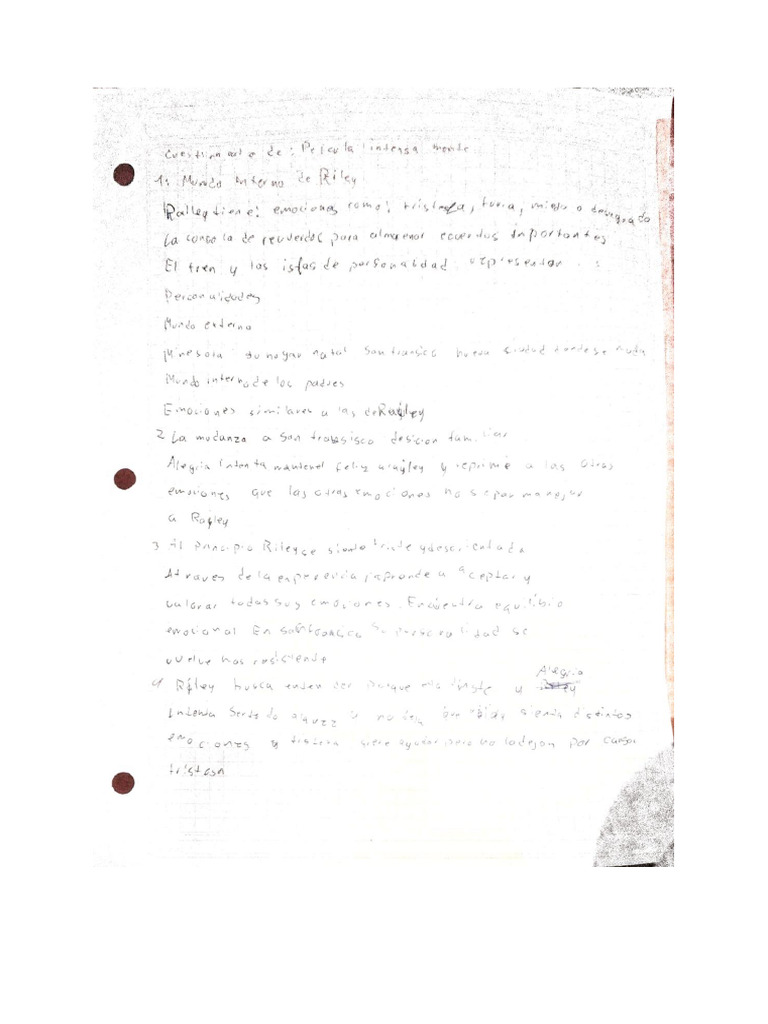 Cuestionario de: Pelicula intensa mente
1: Mundo interno de Riley
Ralley tiene: emociones como: tristesa, furia, miedo o desagrado
La consola de recuerdos para almacenar recuerdos importantes
El tren y las islas de personalidad representan :
Personalidades
Mundo externo
Minesota su hogar natal San fransico nueva ciudad donde se muda
Mundo interno de los padres
Emociones similares a las de Railey
2 La mudanza a San fransisco desicion familiar
Alegria intenta mantener feliz a railey y reprime a las otras
emociones que las otras emociones no sepan manejar
a Railey
3 Al principio Riley se siente triste y desorientada
Atraves de la experiencia, aprende a aceptar y
valorar todas sus emociones. Encuentra equilibrio
emocional En sanfransico Su personalidad se
vuelve mas resiliente
4 Riley busca entender porque esta triste y Alegria
intenta ser y no deja que sienta distintos
emociones y tristesa quiere ayudar pero no la dejan por causar
triste